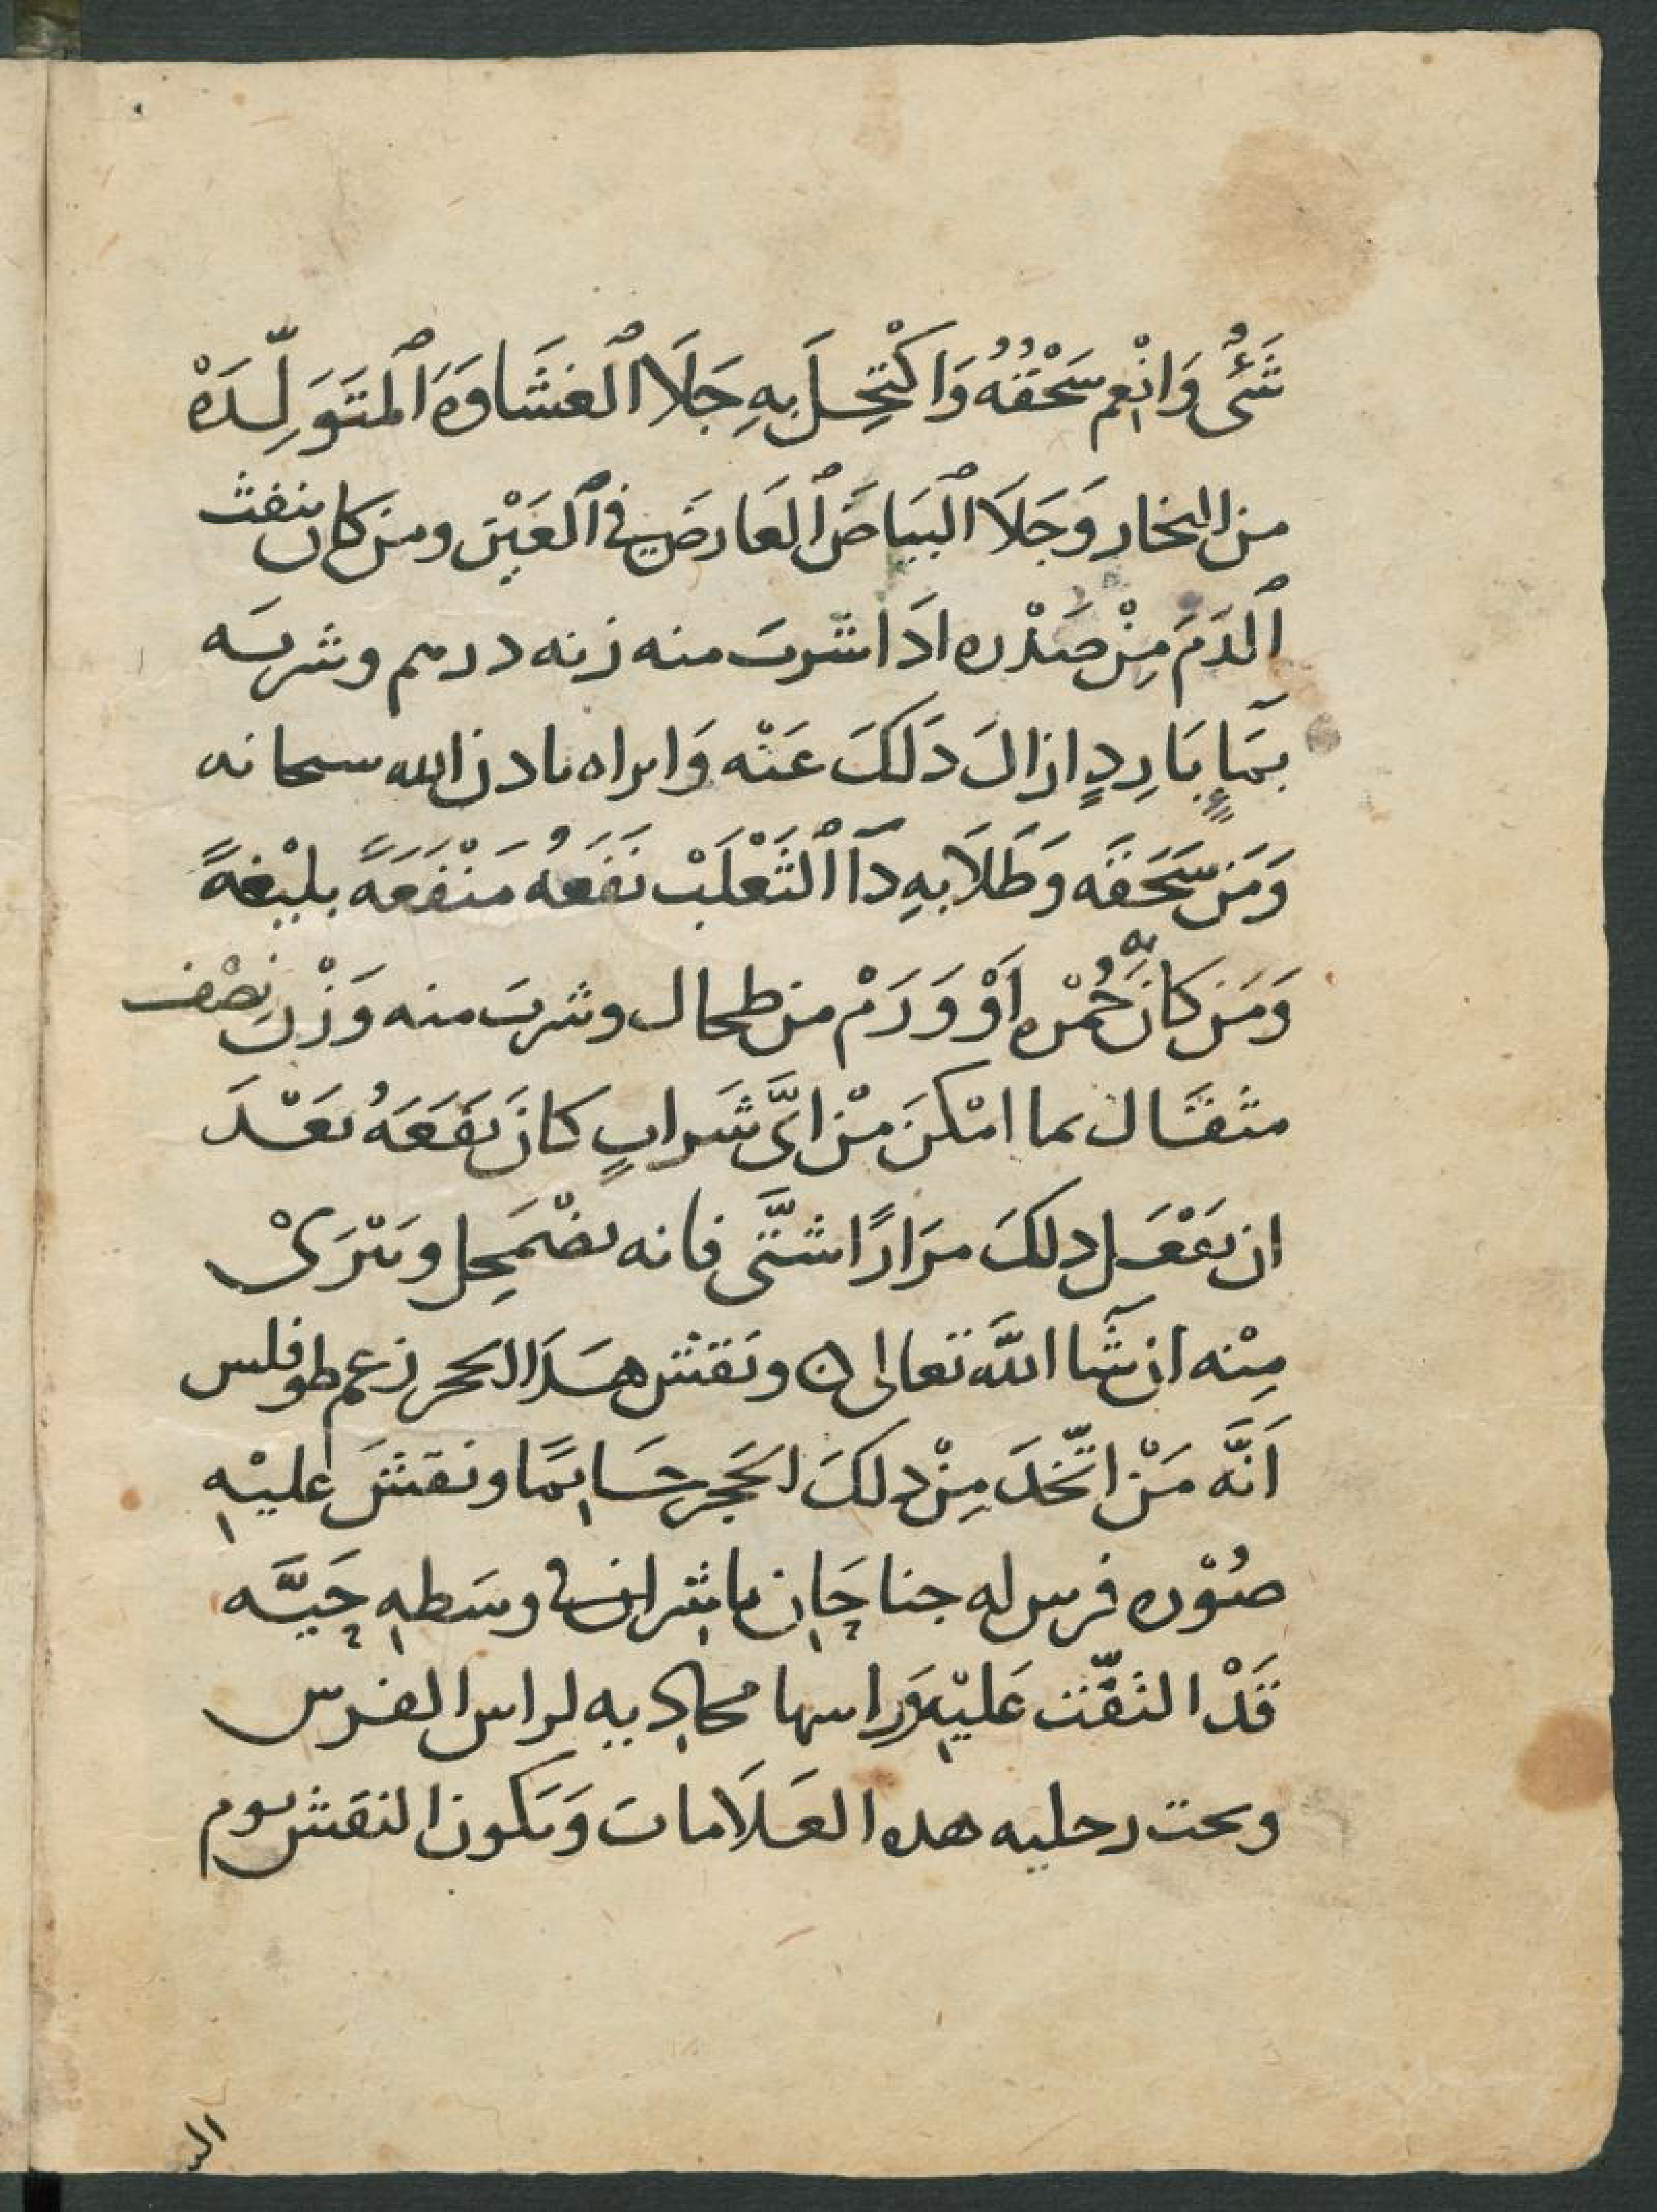 شَئٌ وَانْعِم سَحْقُهُ وَاكْتَحِلَ بِهِ جَلَا ٱلغَشَاوَهَ ٱلمتَوَلِّدَهْ
من البخار وَجَلَا ٱلبَيَاضَ ٱلعَارضَ في ٱلعَيْن ومن كان ينفث
ٱلدَمَ مِنْ صَدْره ادَا شرب منه زنه درهم وشربه
بمَآءٍ بَارِدٍ ازالَ دَلكَ عَنْه وَابراه بادن الله سبحانه
وَمَن سَحَقَه وَطَلَا بِهِ دَآ ٱلثَعْلَبْ نَفَعَهُ مَنْفَعَةً بليْغةً
وَمَن كانَ بِهِ حُمْره اَوْ وَرَمْ من طحال وشرب منه وَزْن نِصْف
مثقَال بما امْكنَ مِنْ ايَّ شَرابٍ كانَ نفَعَهُ بَعْدَ
ان يَفْعَل دلكَ مرَارًا شتَّى فانه يضْمَحِل ويَبْرَىْ
مِنْه ان شَآ اللَّه تعالى ۞ ونَقش هَدَا الحجر زعم طوفلس
اَنَّه مَنْ اتّخَدَ مِنْ دلكَ الحَجر خَاتمًا ونقشَ عليْهِ
صُوْره فرس له جناحَان ناشران في وسَطهِ حَيَّه
قَدْ التفّت عَليْهِ وَراسها محاديه لراس الفرس
وتحت رجليه هده العَلَامات وَيكون النقش يوم